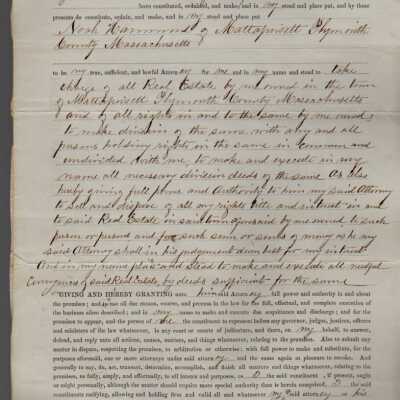 have constituted, ordained, and made, and in my stead and place put, and by these
presents do constitute, ordain, and make, and in my stead and place put
Noah Hammond of Mattapoisett Plymouth
County Massachusetts
to be my true, sufficient, and lawful Attorney for me and in my name and stead to take
charge of all Real Estate by me owned in the town
of Mattapoisett Plymouth County Massachusetts
and of all rights in and to the same by me owned
to make division of the same with any and all
persons holding rights in the same in common and
undivided with me, to make and execute in my
name all necessary division deeds of the same As also
hereby giving full power and Authority to him my said Attorney
to Sell and dispose of all my rights title and interest in and
to said Real Estate in said town aforesaid by me owned to such
person or persons and for such sum or sums of money as my
said Attorney shall in his judgement deem best for my interest
And in my name place and Stead to make and execute all needful
Conveyances of said Real Estate by deeds sufficient for the same
GIVING AND HEREBY GRANTING unto him said Attorney full power and authority in and about
the premises; and to use all due means, course, and process in the law, for the full, effectual, and complete execution of
the business afore described; and in my name to make and execute due acquittance and discharge; and for the
premises to appear, and the person of me the constituent to represent before any governor, judges, justices, officers
and ministers of the law whatsoever, in any court or courts of judicature, and there, on my behalf, to answer,
defend, and reply unto all actions, causes, matters, and things whatsoever, relating to the premises. Also to submit any
matter in dispute, respecting the premises, to arbitration or otherwise; with full power to make and substitute, for the
purposes aforesaid, one or more attorneys under said attorney and the same again at pleasure to revoke. And
generally to say, do, act, transact, determine, accomplish, and finish all matters and things whatsoever, relating to the
premises, as fully, amply, and effectually, to all intents and purposes, as I the said constituent if present, ought
or might personally, although the matter should require more special authority than is herein comprised, I the said
constituent ratifying, allowing and holding firm and valid all and whatsoever my said attorney or his